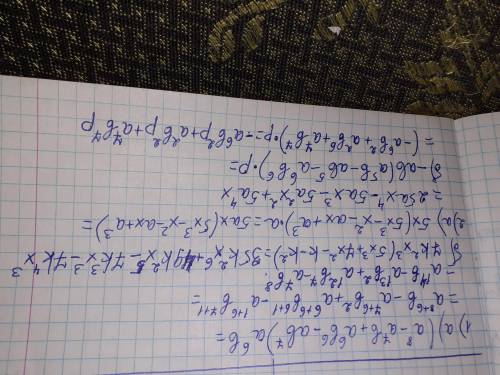 1) а) (a⁸-a⁷b+a⁶b⁶-ab⁷)a⁶b=
=a⁸⁺⁶b-a⁷⁺⁶b²+a⁶⁺⁶b⁶⁺¹-a¹⁺⁶b⁷⁺¹=
=a¹⁴b-a¹³b²+a¹²b⁷-a⁷b⁸.
б) 7k²x³(5x³+7x²-k-k²)=35k²x⁶+49k²x⁵-7k³x³-7k⁴x³
2) а) 5x(5x³-x²-ax+a³)·a=5ax(5x³-x²-ax+a³)=
=25ax⁴-5ax³-5a²x²+5a⁴x
б) -ab(a⁵b-ab⁵-a⁶b⁶)·p=
=(-a⁶b²+a²b⁶+a⁷b⁷)·p=-a⁶b²p+a²b⁶p+a⁷b⁷p